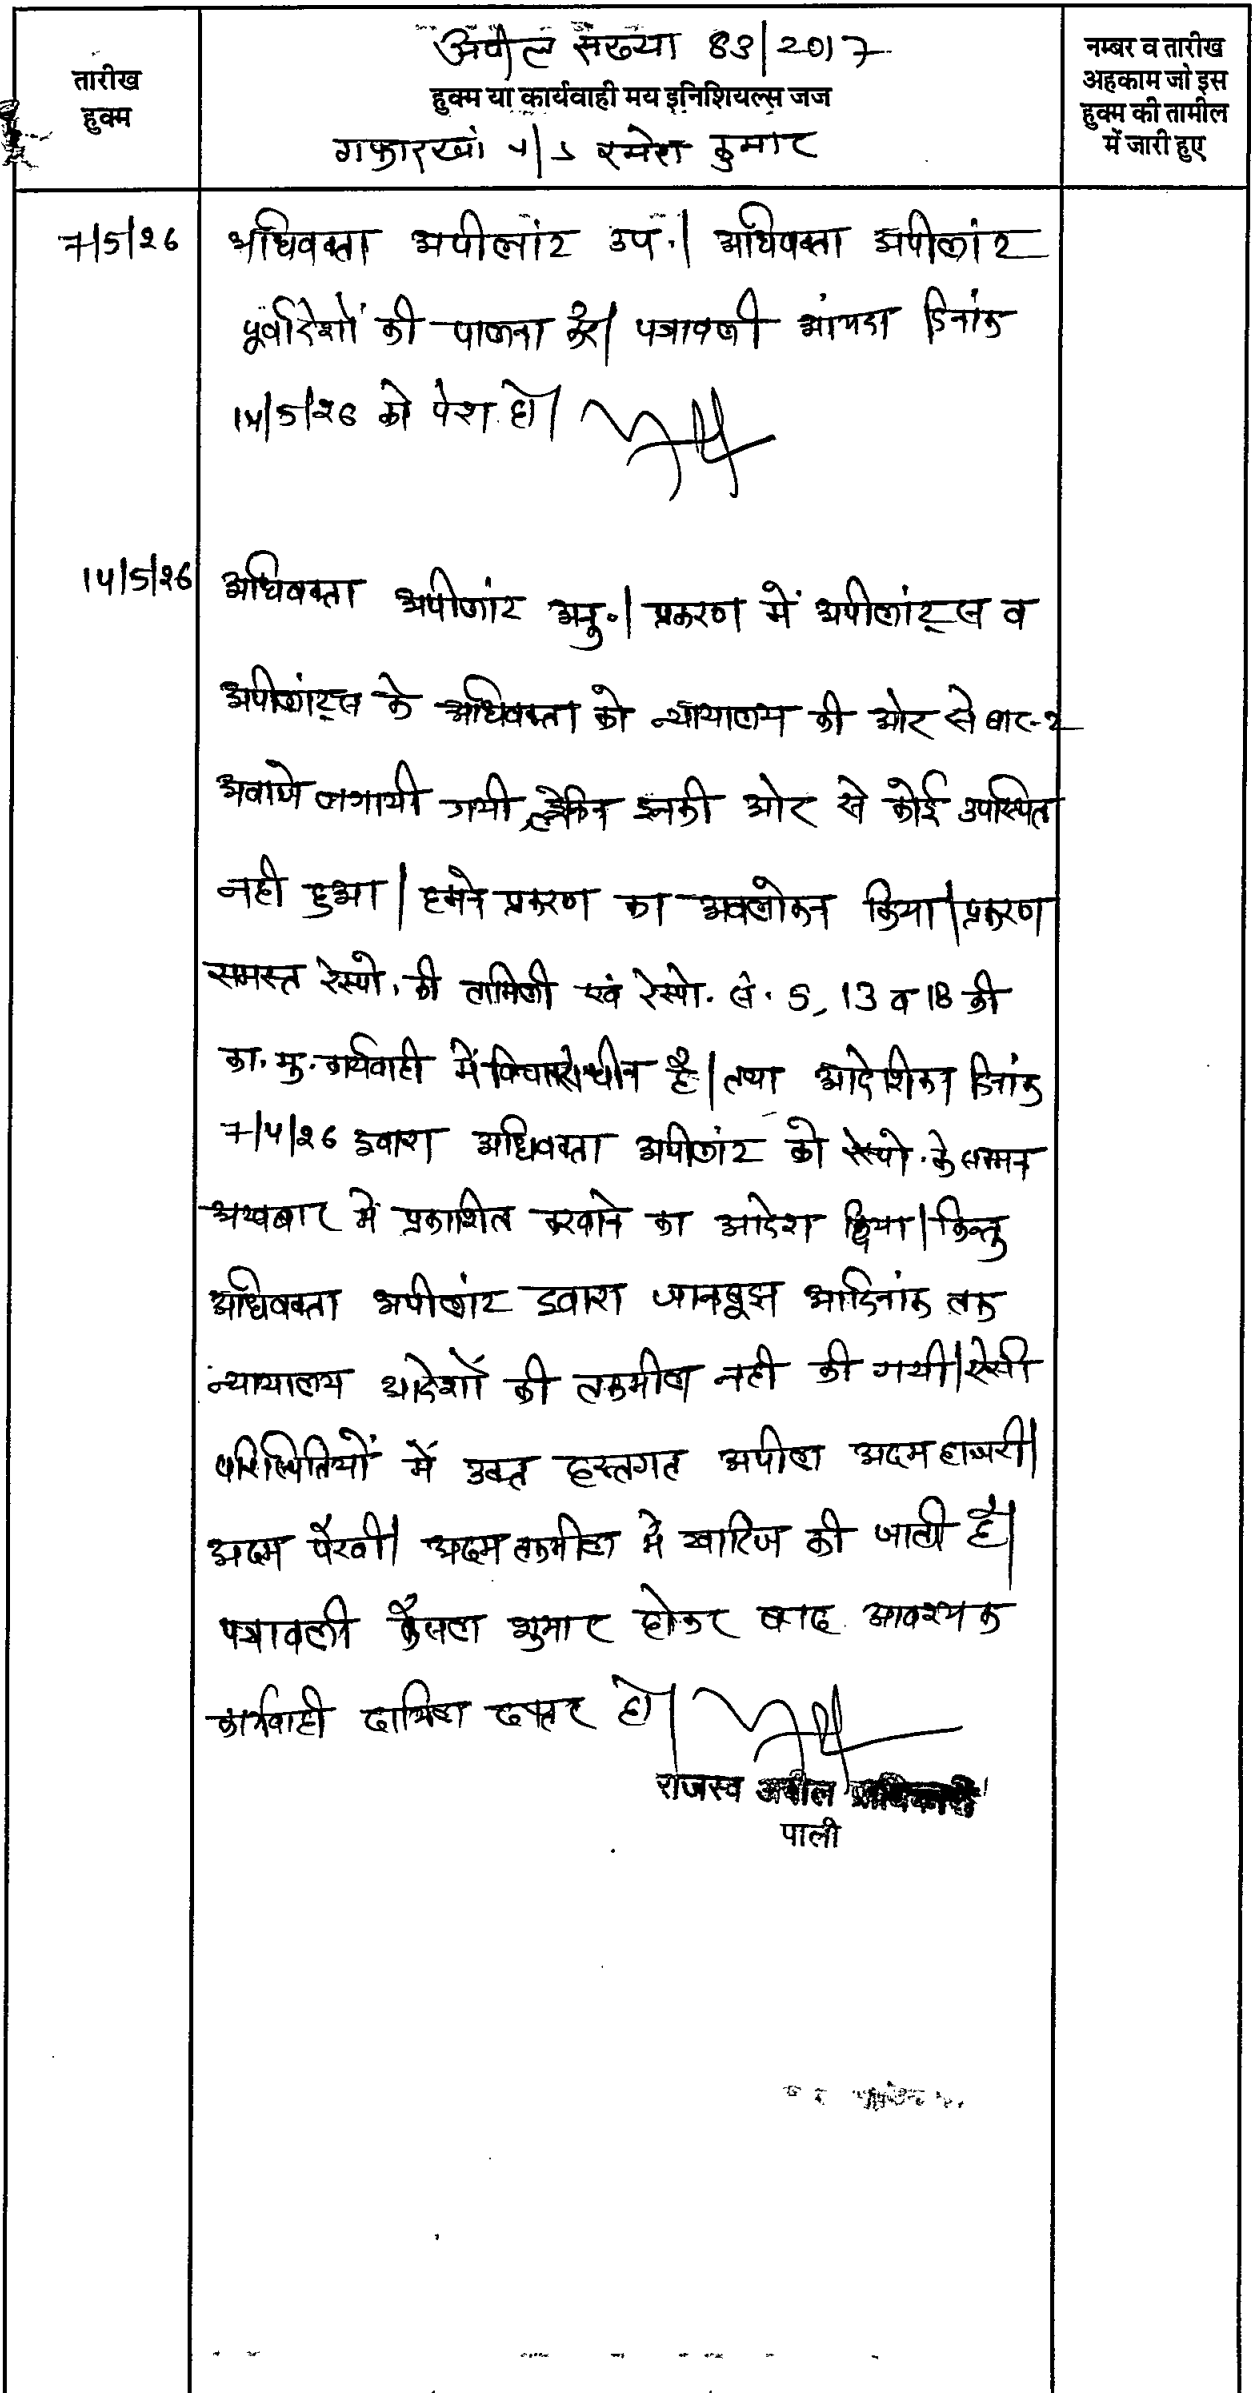 अपील संख्या 83/2017
तारीख
हुक्म
हुक्म या कार्यवाही मय इनिशियल्स जज
गफारखां v/s रमेश कुमार
नम्बर व तारीख
अहकाम जो इस
हुक्म की तामील
में जारी हुए
7/5/26 अधिवक्ता अपीलांट उप.। अधिवक्ता अपीलांट
पूर्वादेशों की पालना करें। पत्रावली आंयदा दिनांक
14/5/26 को पेश हो।
14/5/26 अधिवक्ता अपीलांट अनु.। प्रकरण में अपीलांट्स व
अपीलांट्स के अधिवक्ता को न्यायालय की ओर से बार-2
अवाजे लगायी गयी लेकिन इनकी ओर से कोई उपस्थित
नही हुआ। हमने प्रकरण का अवलोकन किया। प्रकरण
समस्त रेस्पो. की तामिली एवं रेस्पो. सं. 5, 13 व 18 की
का. मु. कार्यवाही में विचाराधीन है। तथा आदेशिका दिनांक
7/4/26 द्वारा अधिवक्ता अपीलांट को रेस्पो. के सम्मन
अखबार में प्रकाशित करवाने का आदेश दिया। किन्तु
अधिवक्ता अपीलांट द्वारा जानबूझ आदिनांक तक
न्यायालय आदेशों की तकमील नही की गयी। ऐसी
परिस्थितियों में उक्त हस्तगत अपील अदम हाजरी।
अदम पैरवी। अदम तकमील मे खारिज की जाती है।
पत्रावली फैसल शुमार होकर बाद आवश्यक
कार्यवाही दाखिल दफ्तर हो।
राजस्व अपील
पाली